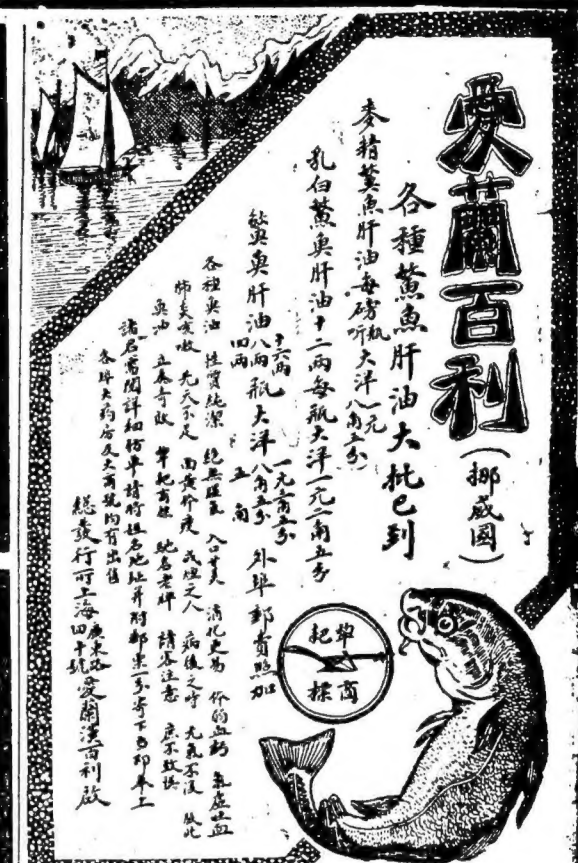 愛蘭百利
(挪威國)
各種鰵魚肝油大批已到
麥精鰵魚肝油每磅瓶聽大洋一元八角五分
乳白鰵魚肝油十二兩每瓶大洋一元二角五分
鰵魚肝油十六兩八兩四兩瓶大洋一元二角五分八角五分五角
外埠郵費照加
各種魚油
性質純潔
絕無腥氣
入口甘美
消化更易
氣虛吐血
肺炎咳嗽
先天不足
面黃
之人
病後之時
元氣不復
服此
魚油
立奏奇效
馳名老牌
請各注意
庶不致誤
諸君需閱詳細仿單請將姓名地址並附郵票一分寄下當即奉上
各埠大藥房及大商號均有出售
總發行所上海廣東路四十號愛蘭漢百利啟
商標